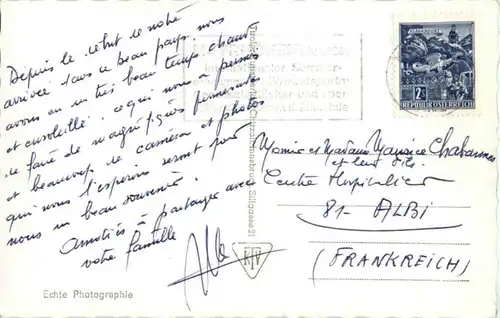 Depuis le début de notre
arrivée dans ce beau pays, nous
avons eu un très beau temps chaud
et ensoleillé, ce qui nous a permis
de faire de magnifiques promenades
et beaucoup de caméra et photos
qui nous l'espérons seront pour
nous un beau souvenir.
Amitiés à partager avec
votre famille
Echte Photographie
KTV
2S
REPUBLIK ÖSTERREICH
Monsieur et Madame Maurice Chabannes
et leur fils
Centre Hospitalier
81- ALBI
(FRANKREICH)